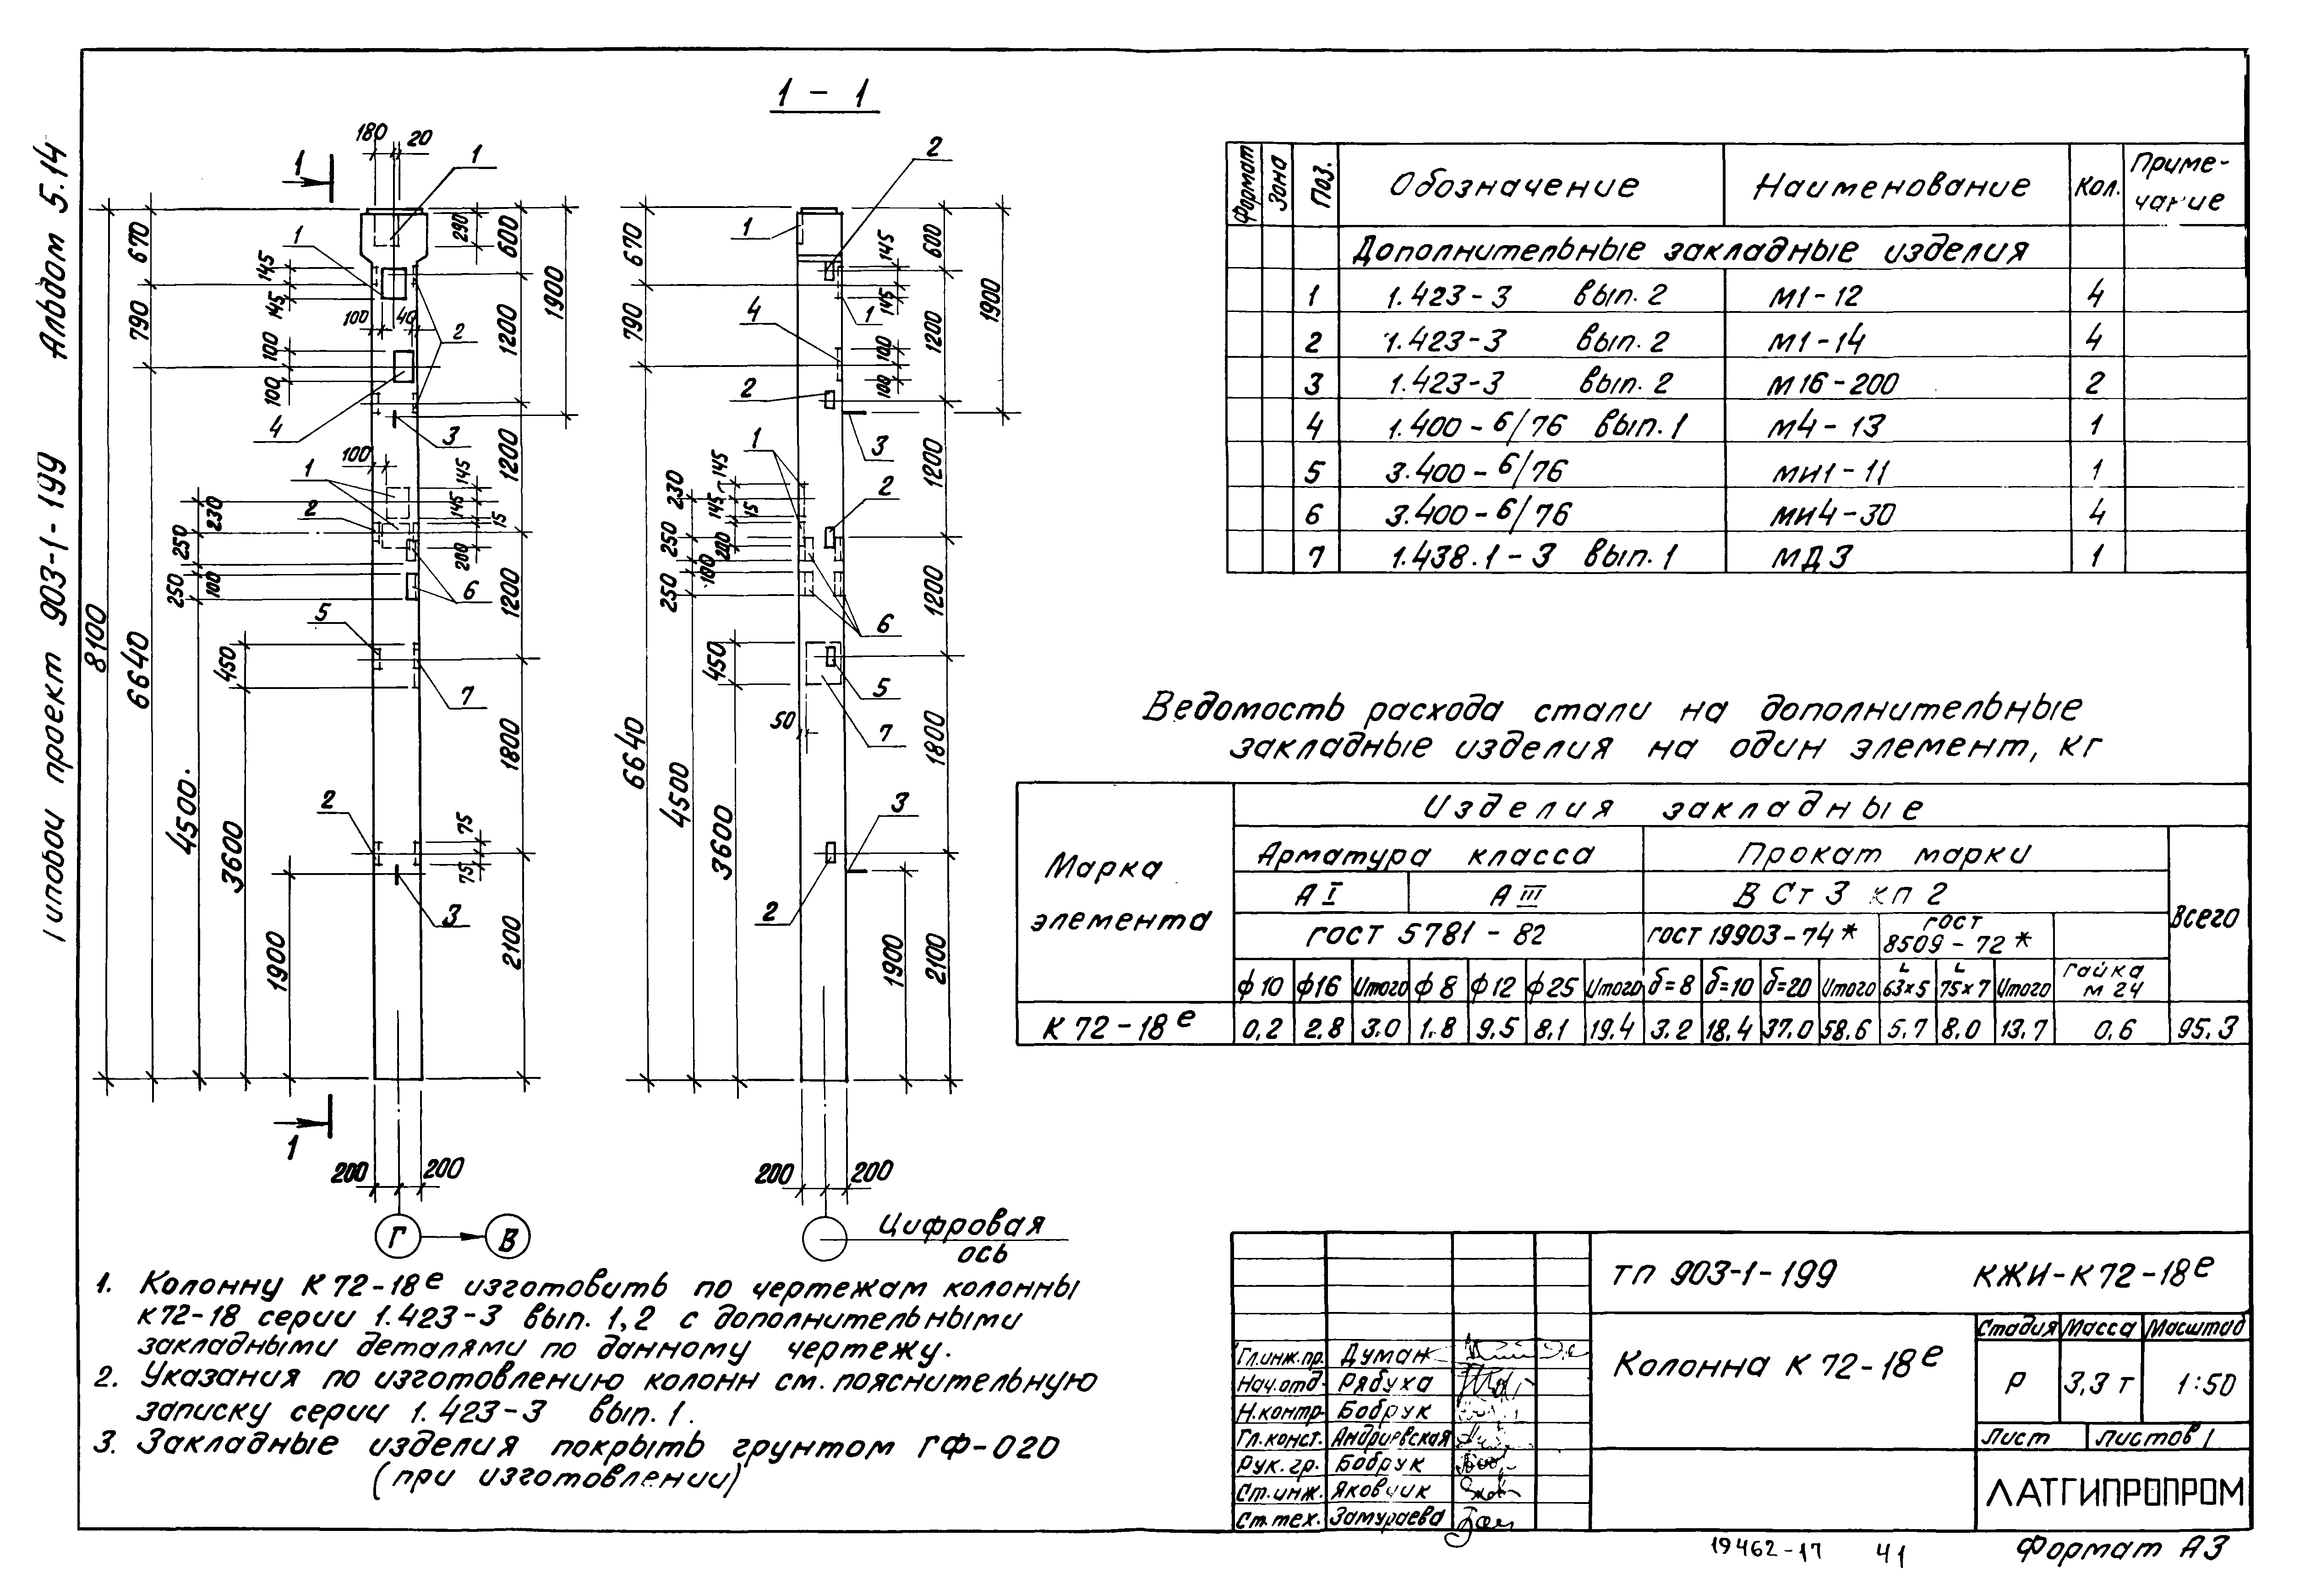 Альбом 5.14
Типовой проект 903-1-199
1 - 1
180
20
1
1
290
600
670
1
145
145
1900
790
100
40
2
1200
100
100
4
3
1200
100
1
145
145
15
230
2
250
200
250
100
6
1200
5
8100
6640
450
7
1800
4500.
3600
2
75
75
3
1900
2100
1
200
200
Г
В
2
1
670
145
600
145
1900
4
1
1200
790
100
100
2
3
1
145
230
145
15
2
1200
250
200
100
250
6
1200
450
5
50
7
1800
6640
4500
3600
3
2
1900
2100
200
200
Цифровая
ось
Формат
Зона
Поз.
Обозначение
Наименование
Кол.
Приме-
чание
Дополнительные закладные изделия
1 1.423-3 вып. 2 М1-12 4
2 1.423-3 вып. 2 М1-14 4
3 1.423-3 вып. 2 М16-200 2
4 1.400-6/76 вып. 1 М4-13 1
5 3.400-6/76 МИ1-11 1
6 3.400-6/76 МИ4-30 4
7 1.438.1-3 вып. 1 МД3 1
Ведомость расхода стали на дополнительные
закладные изделия на один элемент, кг
Марка
элемента
Изделия закладные
Арматура класса Прокат марки
А I А III В Ст 3 кп 2
Всего
ГОСТ 5781-82 ГОСТ 19903-74* ГОСТ
8509-72*
ϕ10 ϕ16 Итого ϕ8 ϕ12 ϕ25 Итого δ=8 δ=10 δ=20 Итого L 63x5 L 75x7 Итого Гайка М 24
К 72-18е 0,2 2,8 3,0 1,8 9,5 8,1 19,4 3,2 18,4 37,0 58,6 5,7 8,0 13,7 0,6 95,3
1. Колонну К 72-18е изготовить по чертежам колонны
К72-18 серии 1.423-3 вып. 1,2 с дополнительными
закладными деталями по данному чертежу.
2. Указания по изготовлению колонн см. пояснительную
записку серии 1.423-3 вып. 1.
3. Закладные изделия покрыть грунтом ГФ-020
(при изготовлении)
ТП 903-1-199 КЖИ-К72-18е
Колонна К 72-18е
Стадия Масса Масштаб
Р 3,3 т 1:50
Лист Листов 1
ЛАТГИПРОПРОМ
Гл.инж.пр. Думан
Нач.отд. Рябуха
Н.контр. Бобрук
Гл.конст. Андриевская
Рук.гр. Бобрук
Ст.инж. Яковчик
Ст.тех. Замураева
19462-17 41
Формат А3